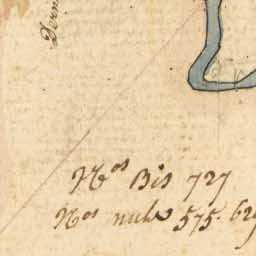 Nos Bis 727
Nos nuls 575. 62